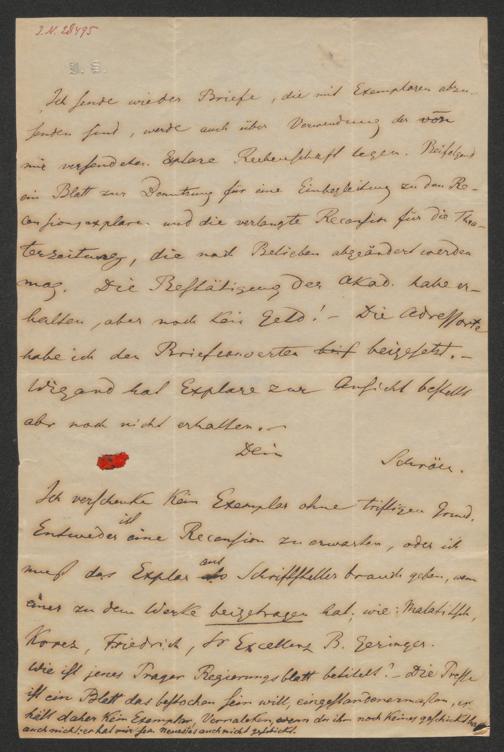 I. N. 28495
Ich sende wieder Briefe, die mit Exemplaren abzu-
senden sind, werde auch über Verwendung der von
mir versendeten Explare Rechenschaft legen. Beifolgend
ein Blatt zur Benutzung für eine Einbegleitung zu den Re-
censionsexplare. und die verlangte Recension für die Thea-
terzeitung, die nach Belieben abgeändert werden
mag. Die Bestätigung der Akad. habe er-
halten, aber noch kein Geld! – Die Adressorte
habe ich den Briefcouverten beigesetzt. –
Wigand hat Explare zur Ansicht bestellt
aber noch nicht erhalten. –
Dein
Schröer.
Ich verschenke kein Exemplar ohne triftigen Grund.
Entweder ist eine Recension zu erwarten, oder ich
muß das Explar als Schriftsteller brauch geben, wenn
einer zu dem Werke beigetragen hat, wie:
Korez, Friedrich, Sr Excellenz B. Geringer.
Wie ist jenes Prager Regierungsblatt betitelt? – Die Presse
ist ein Blatt das bestochen sein will, eingestandenermaßen, er-
hält daher kein Exemplar, wenn du ihm noch keines geschickt hast
auch nicht: er hat mir sein neuestes auch nicht geschickt.